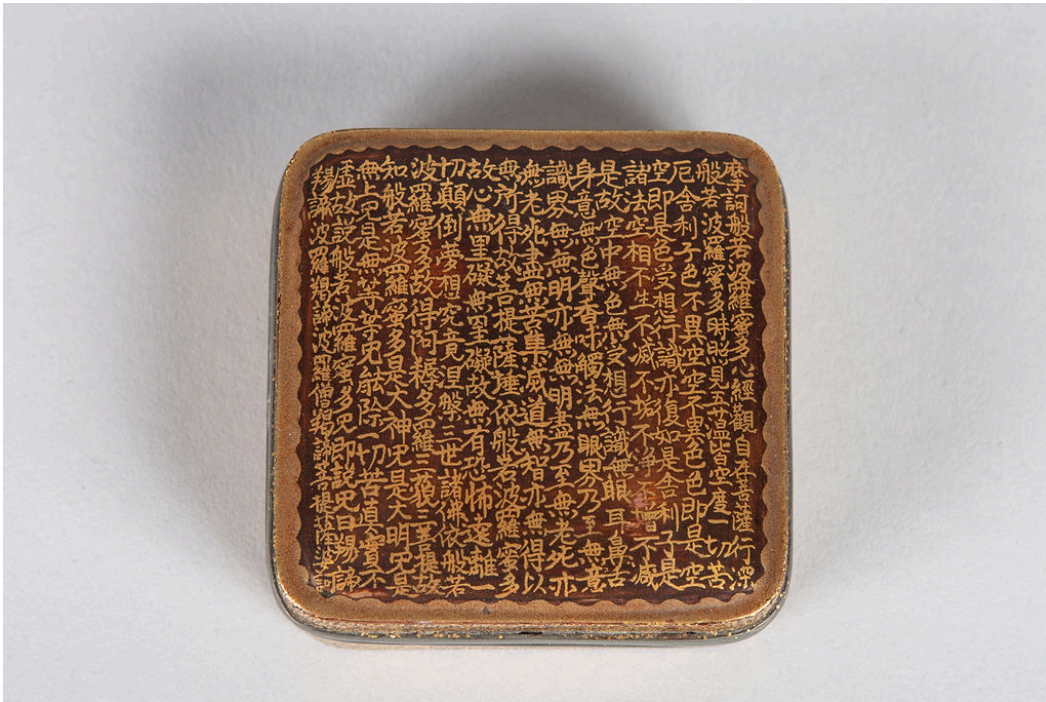 摩訶般若波羅蜜多心經觀自在菩薩行深
般若波羅蜜多時照見五蘊皆空度一切苦
厄舍利子色不異空空不異色色即是空
空即是色受想行識亦復如是舍利子是
諸法空相不生不滅不垢不淨不增不減
是故空中無色無受想行識無眼耳鼻舌
身意無色聲香味觸法無眼界乃至無意
識界無無明亦無無明盡乃至無老死亦
無老死盡無苦集滅道無智亦無得以
無所得故菩提薩埵依般若波羅蜜多
故心無罣礙無罣礙故無有恐怖遠離一
切顛倒夢想究竟涅槃三世諸佛依般若
波羅蜜多故得阿耨多羅三藐三菩提故
知般若波羅蜜多是大神咒是大明咒是
無上咒是無等等咒能除一切苦真實不
虛故說般若波羅蜜多咒即說咒曰揭諦
揭諦波羅揭諦波羅僧揭諦菩提薩婆訶